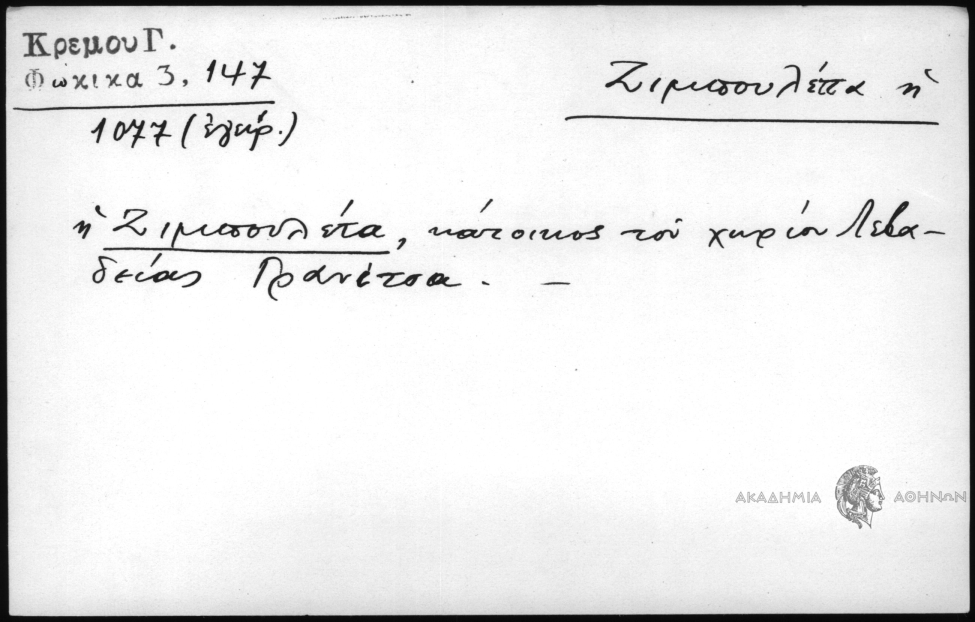 Κρεμου Γ.
Φωκικα 3, 147
1077 (ἐγκφ.)
Ζιμπουλέτα ἡ
ἡ Ζιμπουλέτα, κάτοικος τοῦ χωρίου Λεβα-
δείας Γρανίτσα. –
ΑΚΑΔΗΜΙΑ ΑΘΗΝΩΝ